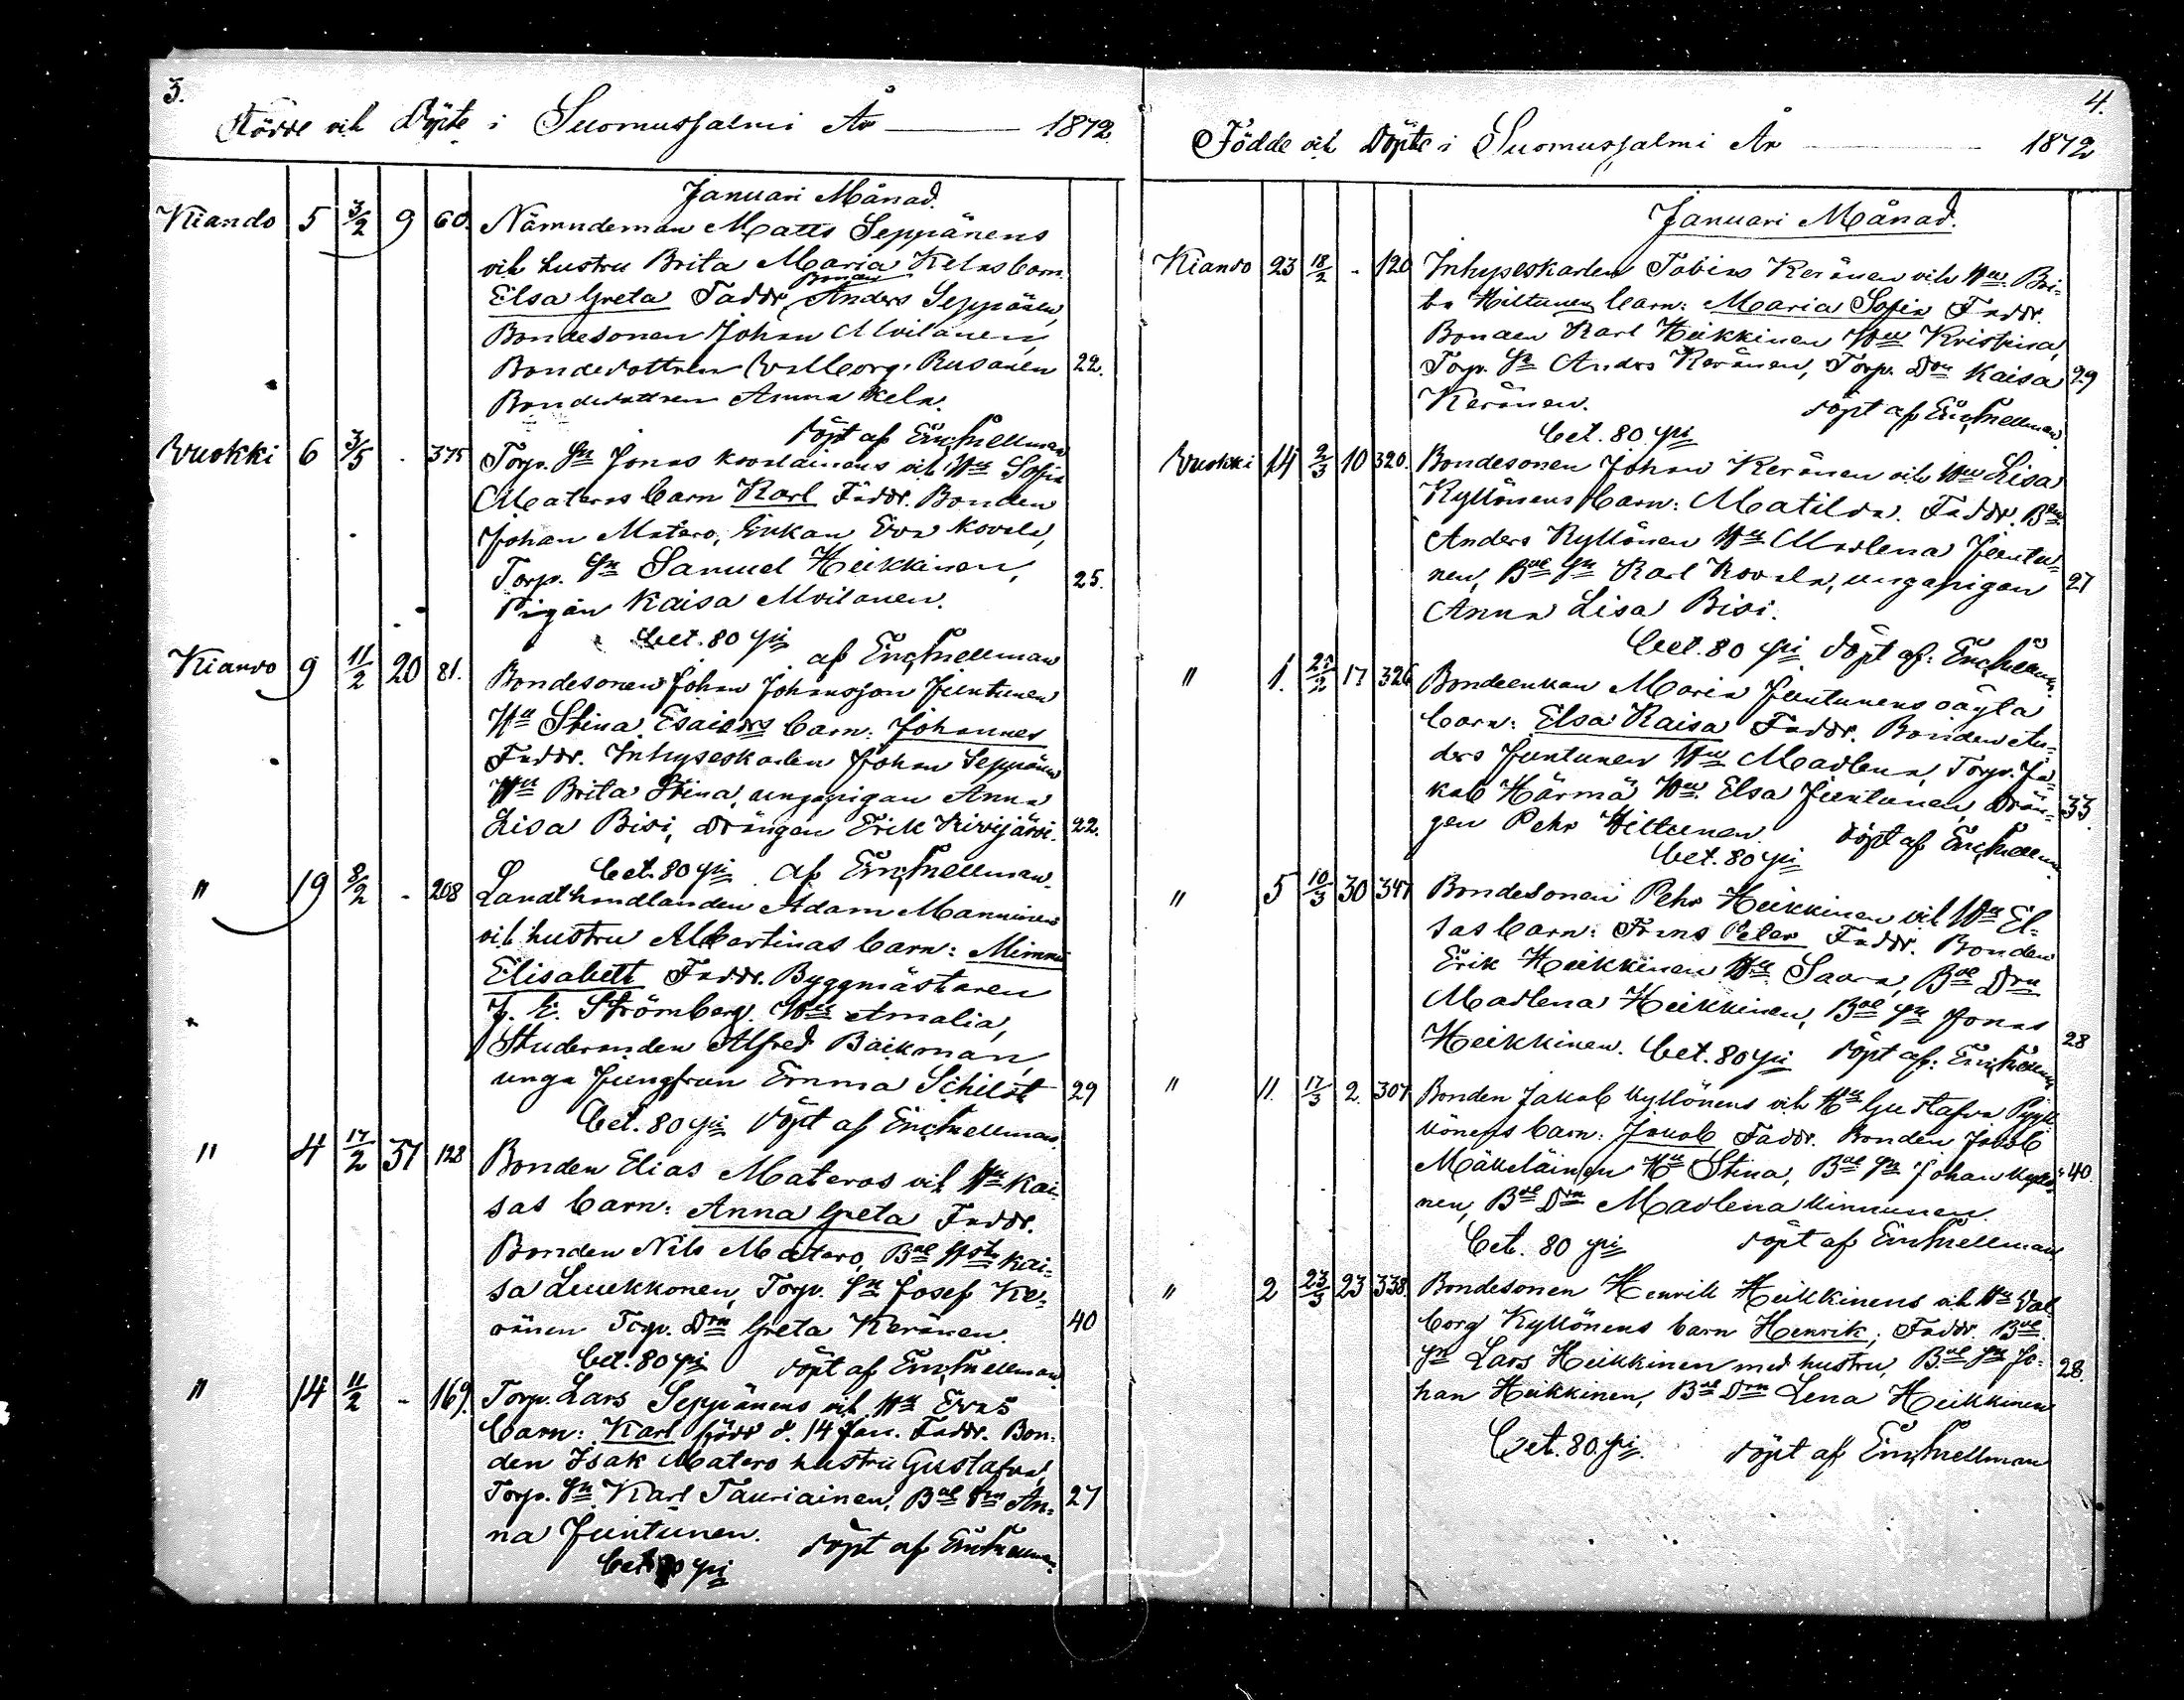 3.
Födde och Döpte i Suomussalmi År 1872.
Januari Månad.
Kiando 5 3/2 9 60. Nämndeman Matts Seppänens
och hustru Brita Maria Kelas barn
Bonden
Elsa Greta Faddr, Anders Seppänen,
Bondesonen Johan Moilanen,
Bondedottren Walborg Rusanen 22.
Bondedottren Anna Kela.
döpt af Eric Snellman
Wuokki 6 3/5 . 375 Torp. Sn Jonas Kovalainens och Hu Sofia
Materos barn Karl Faddr. Bonden
Johan Matero, Enkan Eva Kovala,
Torp. Sn Samuel Heikkinen, 25.
Pigan Kaisa Moilanen.
bet. 80 pi af Eric Snellman
Kiando 9 11/2 20 81. Bondesonen Johan Johansson Juntunen
Hu Stina Esaiedrs barn: Johannes
Faddr. Inhyseskarlen Johan Seppänen
Hu Brita Stina, unga pigan Anna
Lisa Bisi, drängen Erik Kivijärvi. 22.
bet. 80 pi af Eric Snellman.
" 19 8/2 - 208 Landthandlanden Adam Manninens
och hustru Albertinas barn: Mimmi
Elisabett Faddr. Byggmästaren
Strömberg Hu Amalia,
Studeranden Alfred Baikman,
unga Jungfrun Emma Schildt 29
bet. 80 pi döpt af Eric Snellman
" 4 17/2 37 128 Bonden Elias Materos och Hu Kai-
sas barn: Anna Greta Faddr.
Bonden Nils Matero, Bde Hst Kai-
sa Luukkonen, Torp. Sn Josef Ke-
ränen Torp. Drn Greta Keränen. 40
bet. 80 pi döpt af Eric Snellman
" 14 11/2 - 169. Torp. Lars Seppänens och Hu Evas
barn: Karl född d. 14 Jan. Faddr. Bon-
den Isak Matero hustru Gustafva,
Torp. Sn Karl Tauriainen, Bde Drn An- 27
na Juntunen. döpt af Eric Snellman
bet 80 pi
4.
Födde och Döpte i Suomussalmi År 1872
Januari Månad.
Kiando 23 18/2 - 120 Inhyseskarlen Tobias Keränen och Hu Bri-
ta Hiltunen barn: Maria Sofia Faddr.
Bonden Karl Heikkinen Hu Kristina,
Torp. Sn Anders Keränen, Torp. Drn Kaisa 29
Keränen. döpt af Eric Snellman
bet. 80 pi
Wuokki 14 2/3 10 320. Bondesonen Johan Keränen och Hu Lisa
Kyllönens barn: Matilda. Faddr. Bdn
Anders Kyllönen Hu Madlena Juntu-
nen, Bde Sn Karl Kovala, unga pigan 27
Anna Lisa Bisi.
bet. 80 pi döpt af: Eric Snellman.
" 1. 25/2 17 326 Bondeenkan Maria Juntunens oägta
barn: Elsa Kaisa Faddr. Bonden An-
ders Juntunen Hu Madlena, Torp. Ja-
kob Härmä Hu Elsa Juntunen, drän- 33
gen Pehr Hiltunen döpt af Eric Snellman
bet. 80 pi
" 5 10/3 30 347 Bondesonen Pehr Heikkinen och Hu El-
sas barn: Frans Peter Faddr. Bonden
Erik Heikkinen Hu Saara, Bde Drn
Madlena Heikkinen, Bde Sn Jonas 28
Heikkinen. bet. 80 pi döpt af: Eric Snellman
" 11. 17/3 2. 307 Bonden Jakob Kyllönens och Hu Gustafva Pyyk-
könens barn: Jakob Faddr. Bonden Jakob
Mäkeläinen Hu Stina, Bde Sn Johan Kyllö- 40.
nen, Bde Drn Madlena Kinnunen.
bet. 80 pi döpt af Eric Snellman
" 2 23/3 23 338. Bondesonen Henrik Heikkinens och Hu Val-
borg Kyllönens barn Henrik; Faddr. Bde
Sn Lars Heikkinen med hustru, Bde Sn Jo- 28.
han Heikkinen, Bde Drn Lena Heikkinen
bet. 80 pi. döpt af Eric Snellman